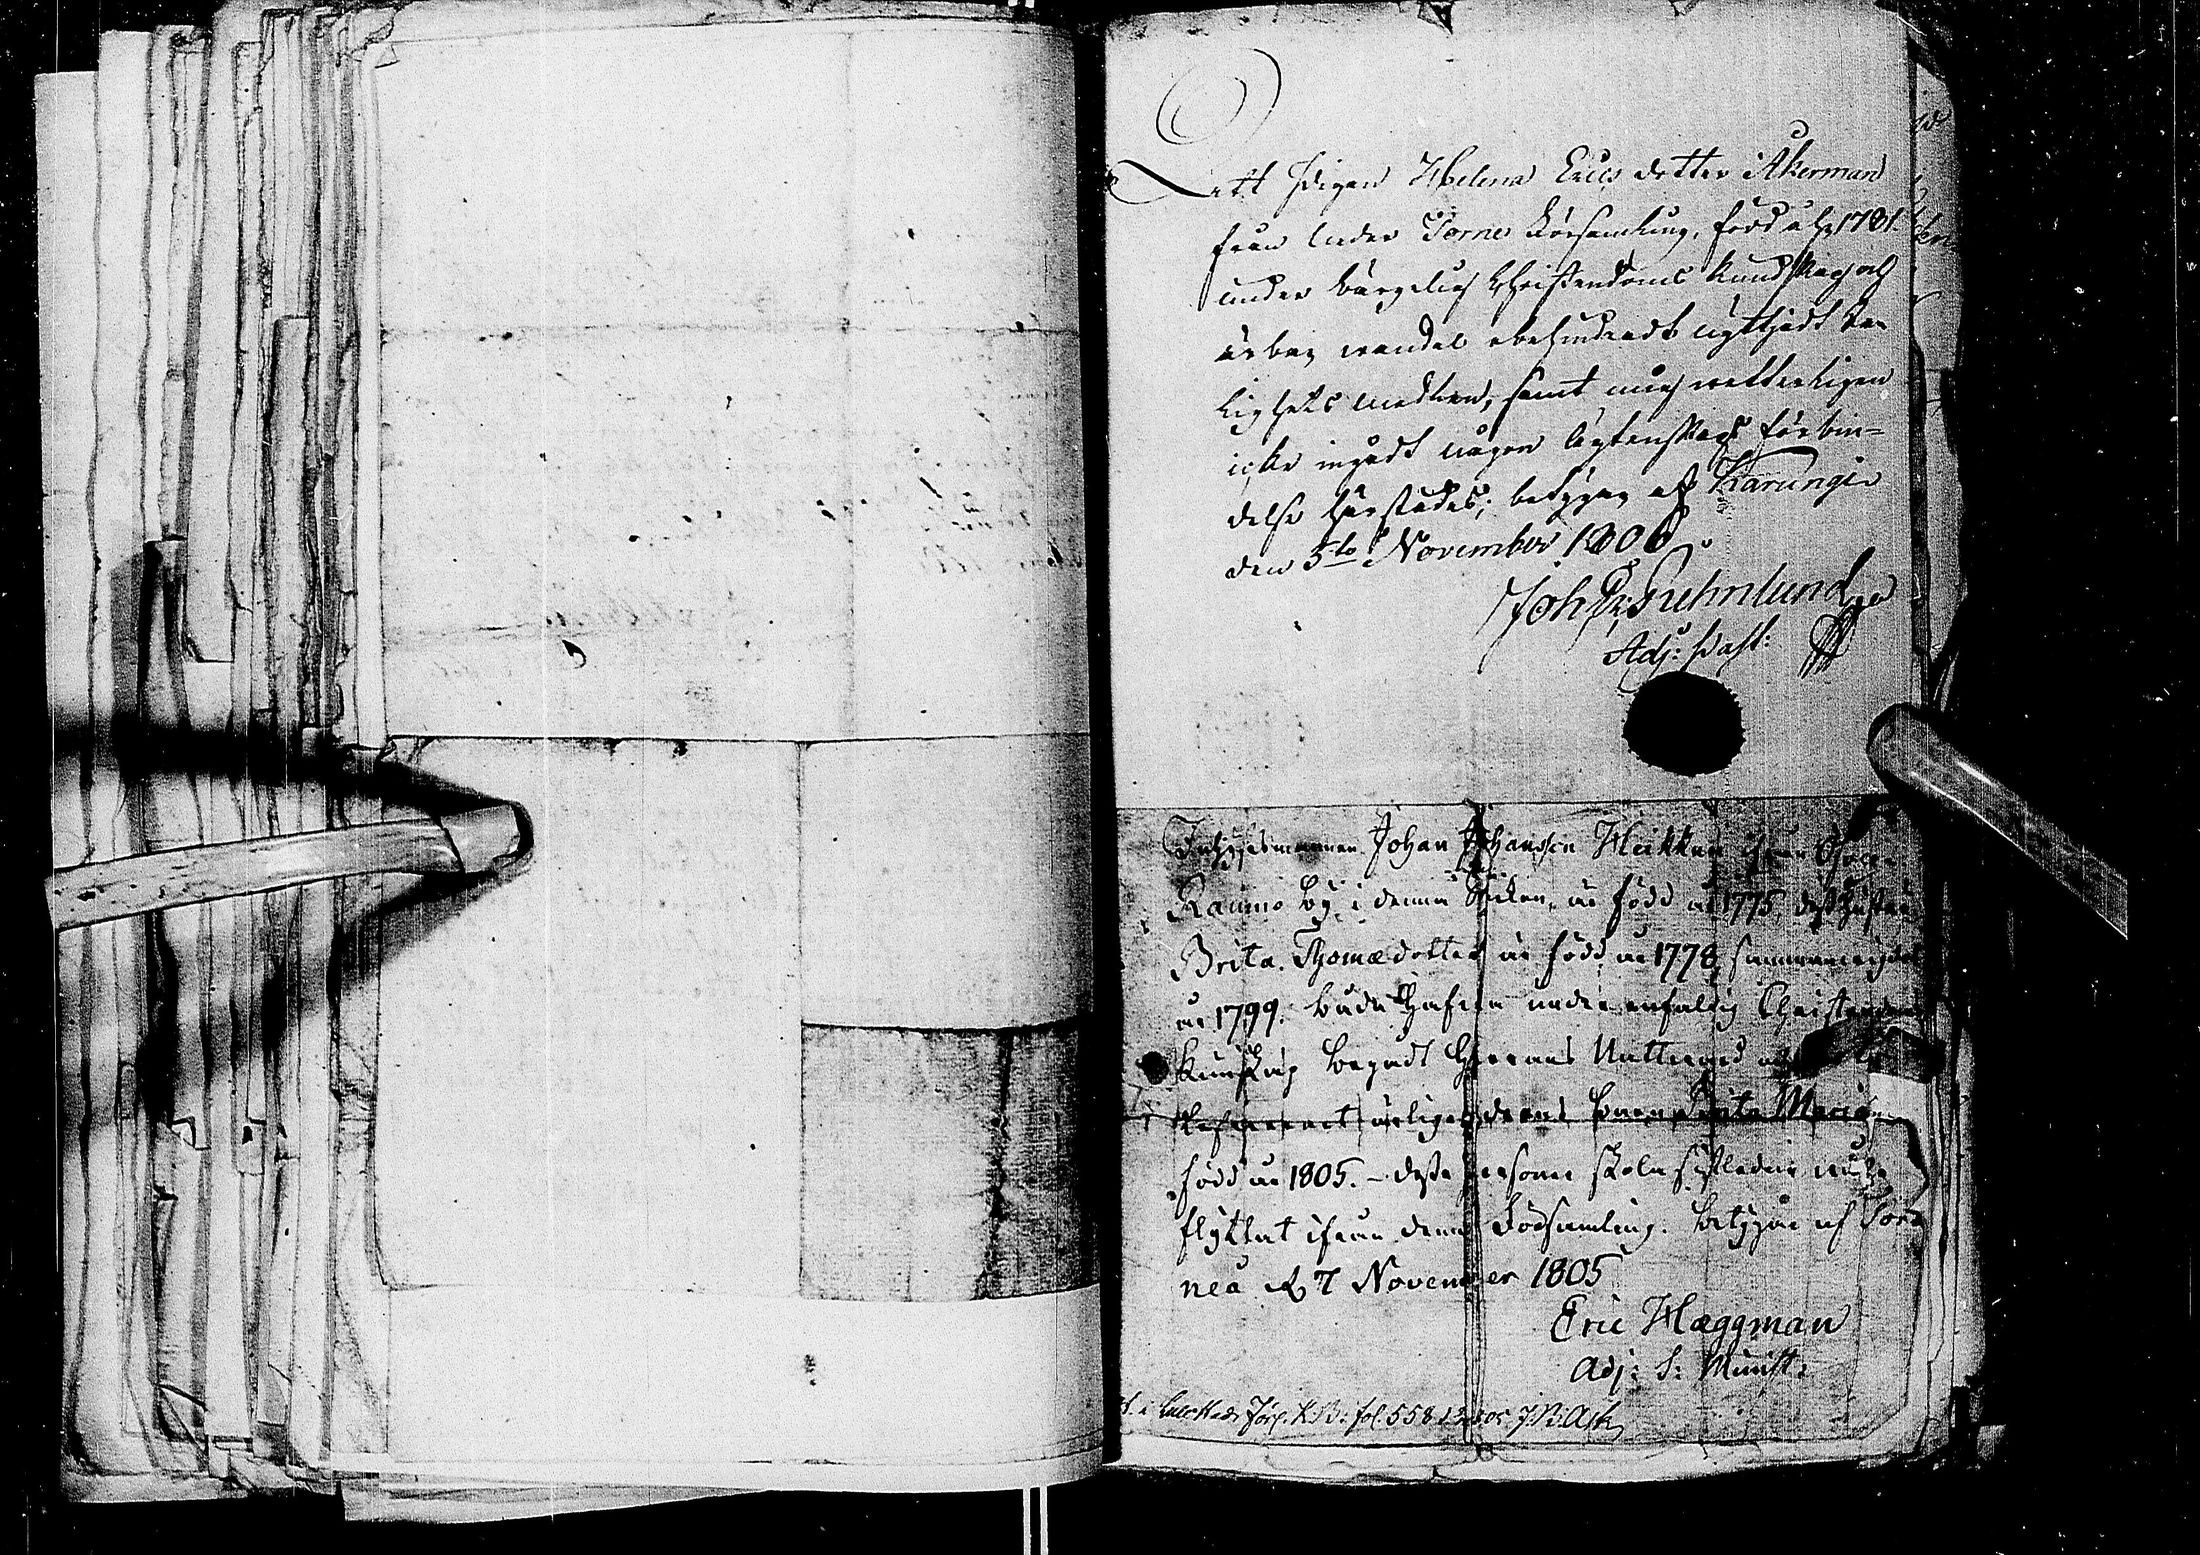 Att Pigan Helena Ericsdotter Åkerman
från Neder Torne Församling, född år 1781.
under börgelig Christendoms Kundskap och
ärbar wandel obehindradt nyttjadt Sa-
lighets medlen, samt mig wetterligen
icke ingådt någon ägtenskaps förbin=
delse härstädes; betygar af Karungi
den 5te November 1806.
Joh Fr:
Adj: Past:
Inhysesmannen Johan Johansson Heikken ifrån
Raumo by i denna Sokn, är född år 1775, dess hustru
Brita Thomædotter är född år 1778, sammanwigde
år 1799. Både hafwa under enfaldig Christendoms
Kunskap begådt Herrans Nattward
årligen deras barn Brita Maria
född år 1805. – desse personer skola sistledne
flyttat ifrån denna Församling. betygar af Tor
neå d. 7 November 1805
Eric Hæggman
Adj: S: Minist:
K.B: fol. 558